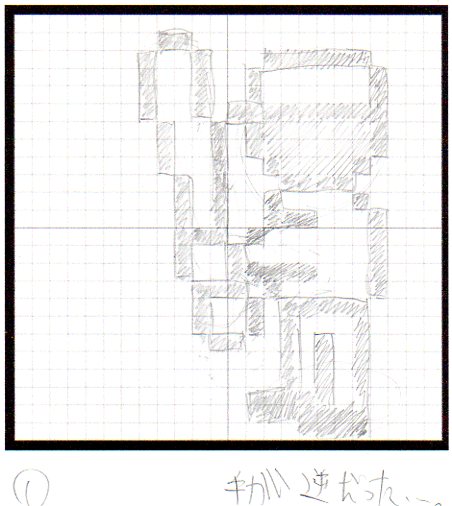 ① 手が逆だった…。